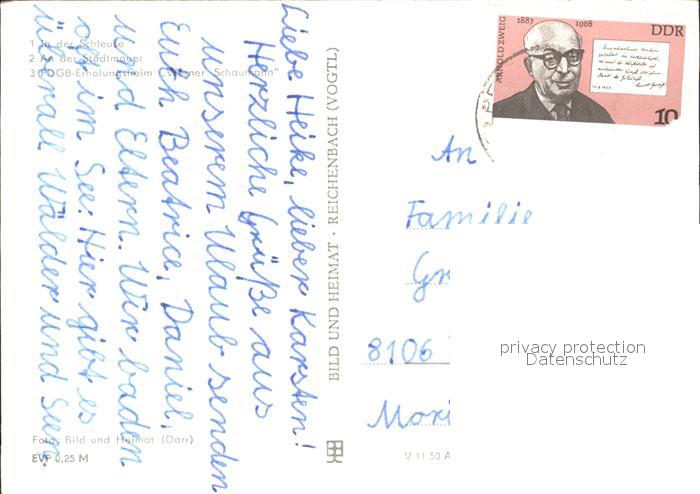 1 In der Schleuse
2 An der Stadtmauer
3 FDGB-Erholungsheim „Werner Schaumann“
Liebe Heike, lieber Karsten!
Herzliche Grüße aus
unserem Ulaub senden
Euch Beatrice, Daniel,
und Eltern. Wir baden
oft im See. Hier gibt es
überall Wälder und Seen.
Foto: Bild und Heimat (Darr)
EVP 0,25 M
BILD UND HEIMAT · REICHENBACH (VOGTL)
V 11 50 A
ARNOLD ZWEIG
1887 1968
DDR
10
An
Familie
Gr
8106
Mori
privacy protection
Datenschutz